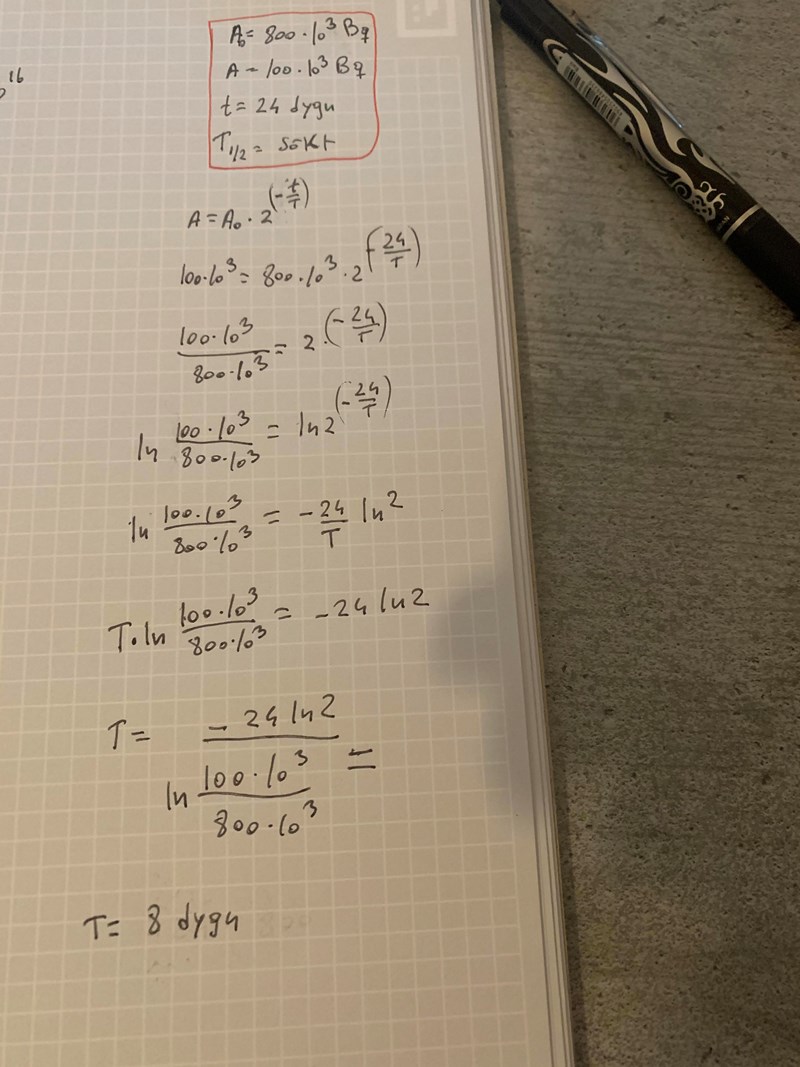 16
A₀ = 800 · 10³ Bq
A = 100 · 10³ Bq
t = 24 dygn
T₁/₂ = sökt
A = A₀ · 2^(-t/T)
100·10³ = 800·10³ · 2^(-24/T)
100·10³/800·10³ = 2^(-24/T)
ln 100·10³/800·10³ = ln2^(-24/T)
ln 100·10³/800·10³ = -24/T ln2
T·ln 100·10³/800·10³ = -24 ln2
T = -24 ln2 / ln 100·10³/800·10³ =
T = 8 dygn